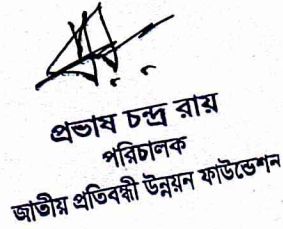 প্রভাষ চন্দ্র রায়
পরিচালক
জাতীয় প্রতিবন্ধী উন্নয়ন ফাউন্ডেশন